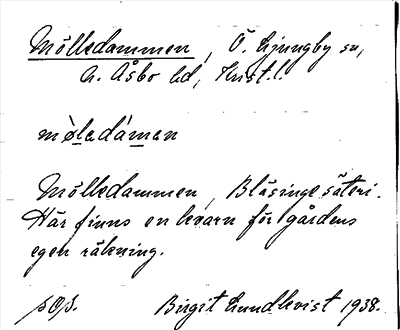 Mölledammen, Ö. Ljungby sn,
N. Åsbo hd, Krist. l.
møledámen
Mölledammen, Blåsinge säteri.
Här finns en kvarn för gårdens
egen räkning.
Birgit Lundkvist 1938.